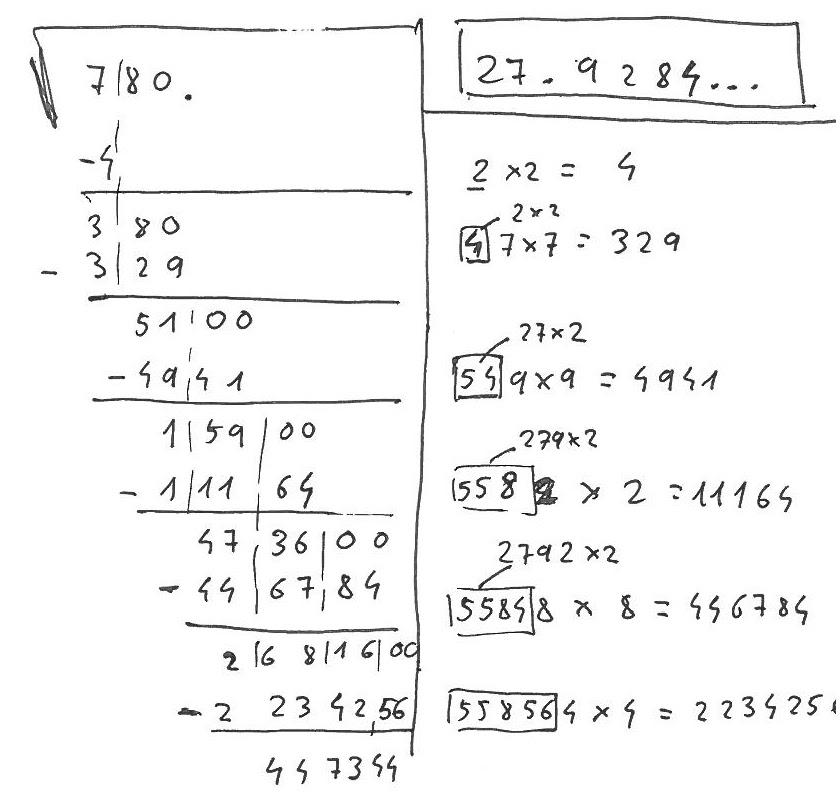 7|80.
27.9284...
-4
2 ×2 = 4
3|80
2×2
4 7×7 = 329
- 3|29
51|00
27×2
-49|41
54 9×9 = 4941
1|59|00
279×2
- 1|11|64
558 2 × 2 = 11164
47|36|00
2792×2
- 44|67|84
5584 8 × 8 = 446784
2|68|16|00
- 2 2342,56
55856 4 × 4 = 223425
447344